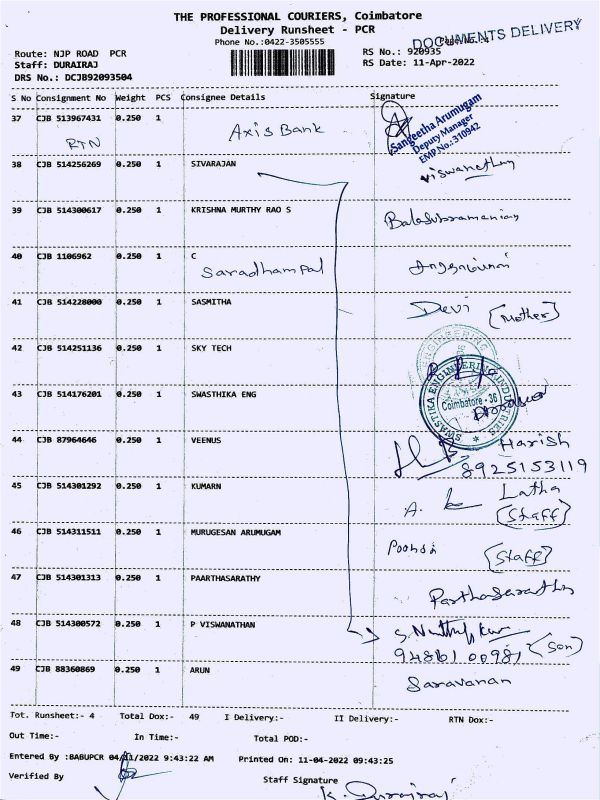 THE PROFESSIONAL COURIERS, Coimbatore
Delivery Runsheet - PCR
Phone No.:0422-3505555
DOCUMENTS DELIVERY
Route: NJP ROAD PCR
RS No.: 920935
Staff: DURAIRAJ
RS Date: 11-Apr-2022
DRS No.: DCJB92093504
S No Consignment No Weight PCS Consignee Details Signature
37 CJB 513967431 0.250 1 Axis Bank
RTN
Sangeetha Arumugam
Deputy Manager
EMP.No.:310942
38 CJB 514256269 0.250 1 SIVARAJAN
Viswanathan
39 CJB 514300617 0.250 1 KRISHNA MURTHY RAO S
Balasubramanian
40 CJB 1106962 0.250 1 C
Saradhampal
41 CJB 514228000 0.250 1 SASMITHA
Devi (Mother)
42 CJB 514251136 0.250 1 SKY TECH
43 CJB 514176201 0.250 1 SWASTHIKA ENG
SWASTIKA ENGINEERING INDUSTRIES
Coimbatore - 36
44 CJB 87964646 0.250 1 VEENUS
Harish
8925153119
45 CJB 514301292 0.250 1 KUMARN
A. Latha
(Staff)
46 CJB 514311511 0.250 1 MURUGESAN ARUMUGAM
(Staff)
47 CJB 514301313 0.250 1 PAARTHASARATHY
Parthasarathy
48 CJB 514300572 0.250 1 P VISWANATHAN
(Son)
49 CJB 88360869 0.250 1 ARUN
Saravanan
Tot. Runsheet:- 4 Total Dox:- 49 I Delivery:- II Delivery:- RTN Dox:-
Out Time:- In Time:- Total POD:-
Entered By :BABUPCR 04/11/2022 9:43:22 AM Printed On: 11-04-2022 09:43:25
Verified By Staff Signature
K. Durairaj